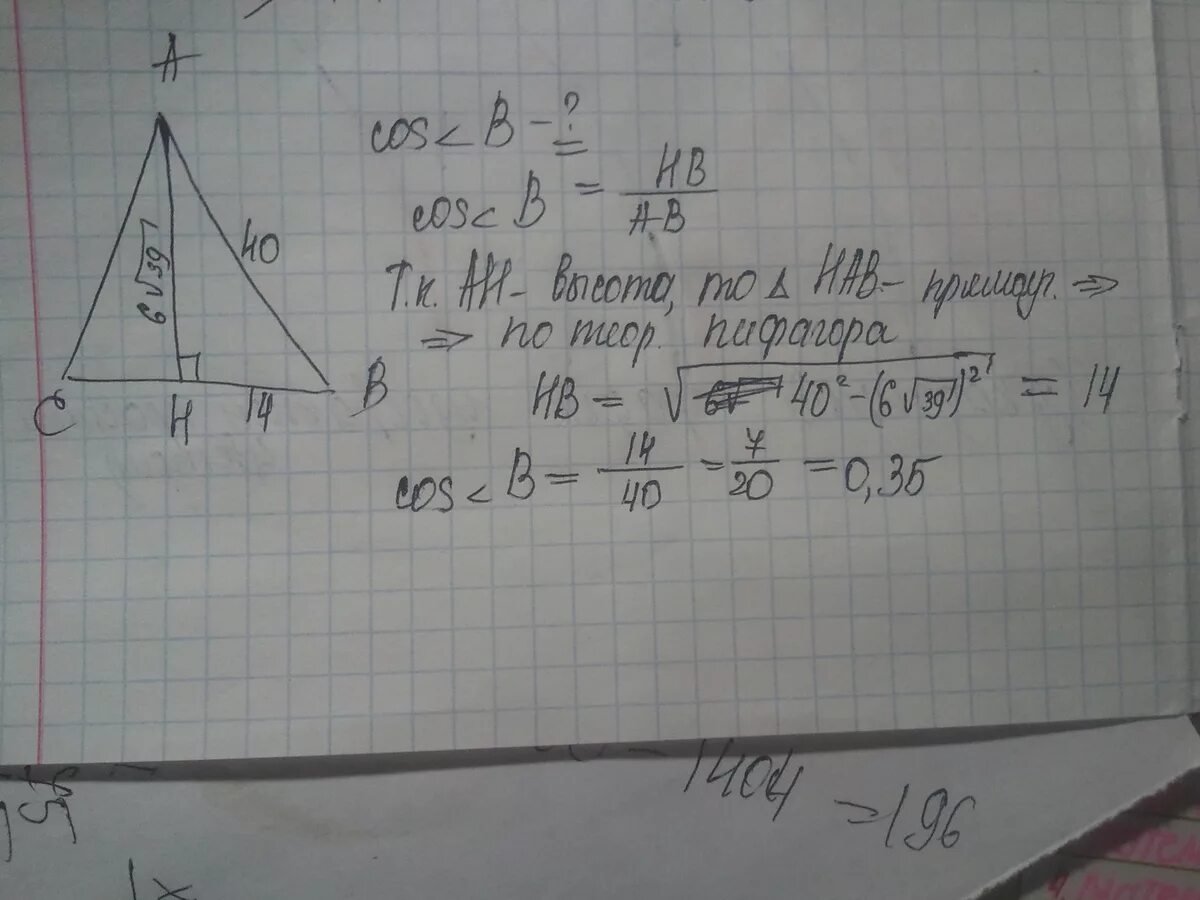 A
6√39
40
C
H
14
B
cos< B - ?
cos< B = HB/AB
Т.к. AH - высота, то Δ HAB - прямоуг. ⇒
⇒ по теор. пифагора
HB = √(40² - (6√39)²) = 14
cos< B = 14/40 = 7/20 = 0,35
1404
=196